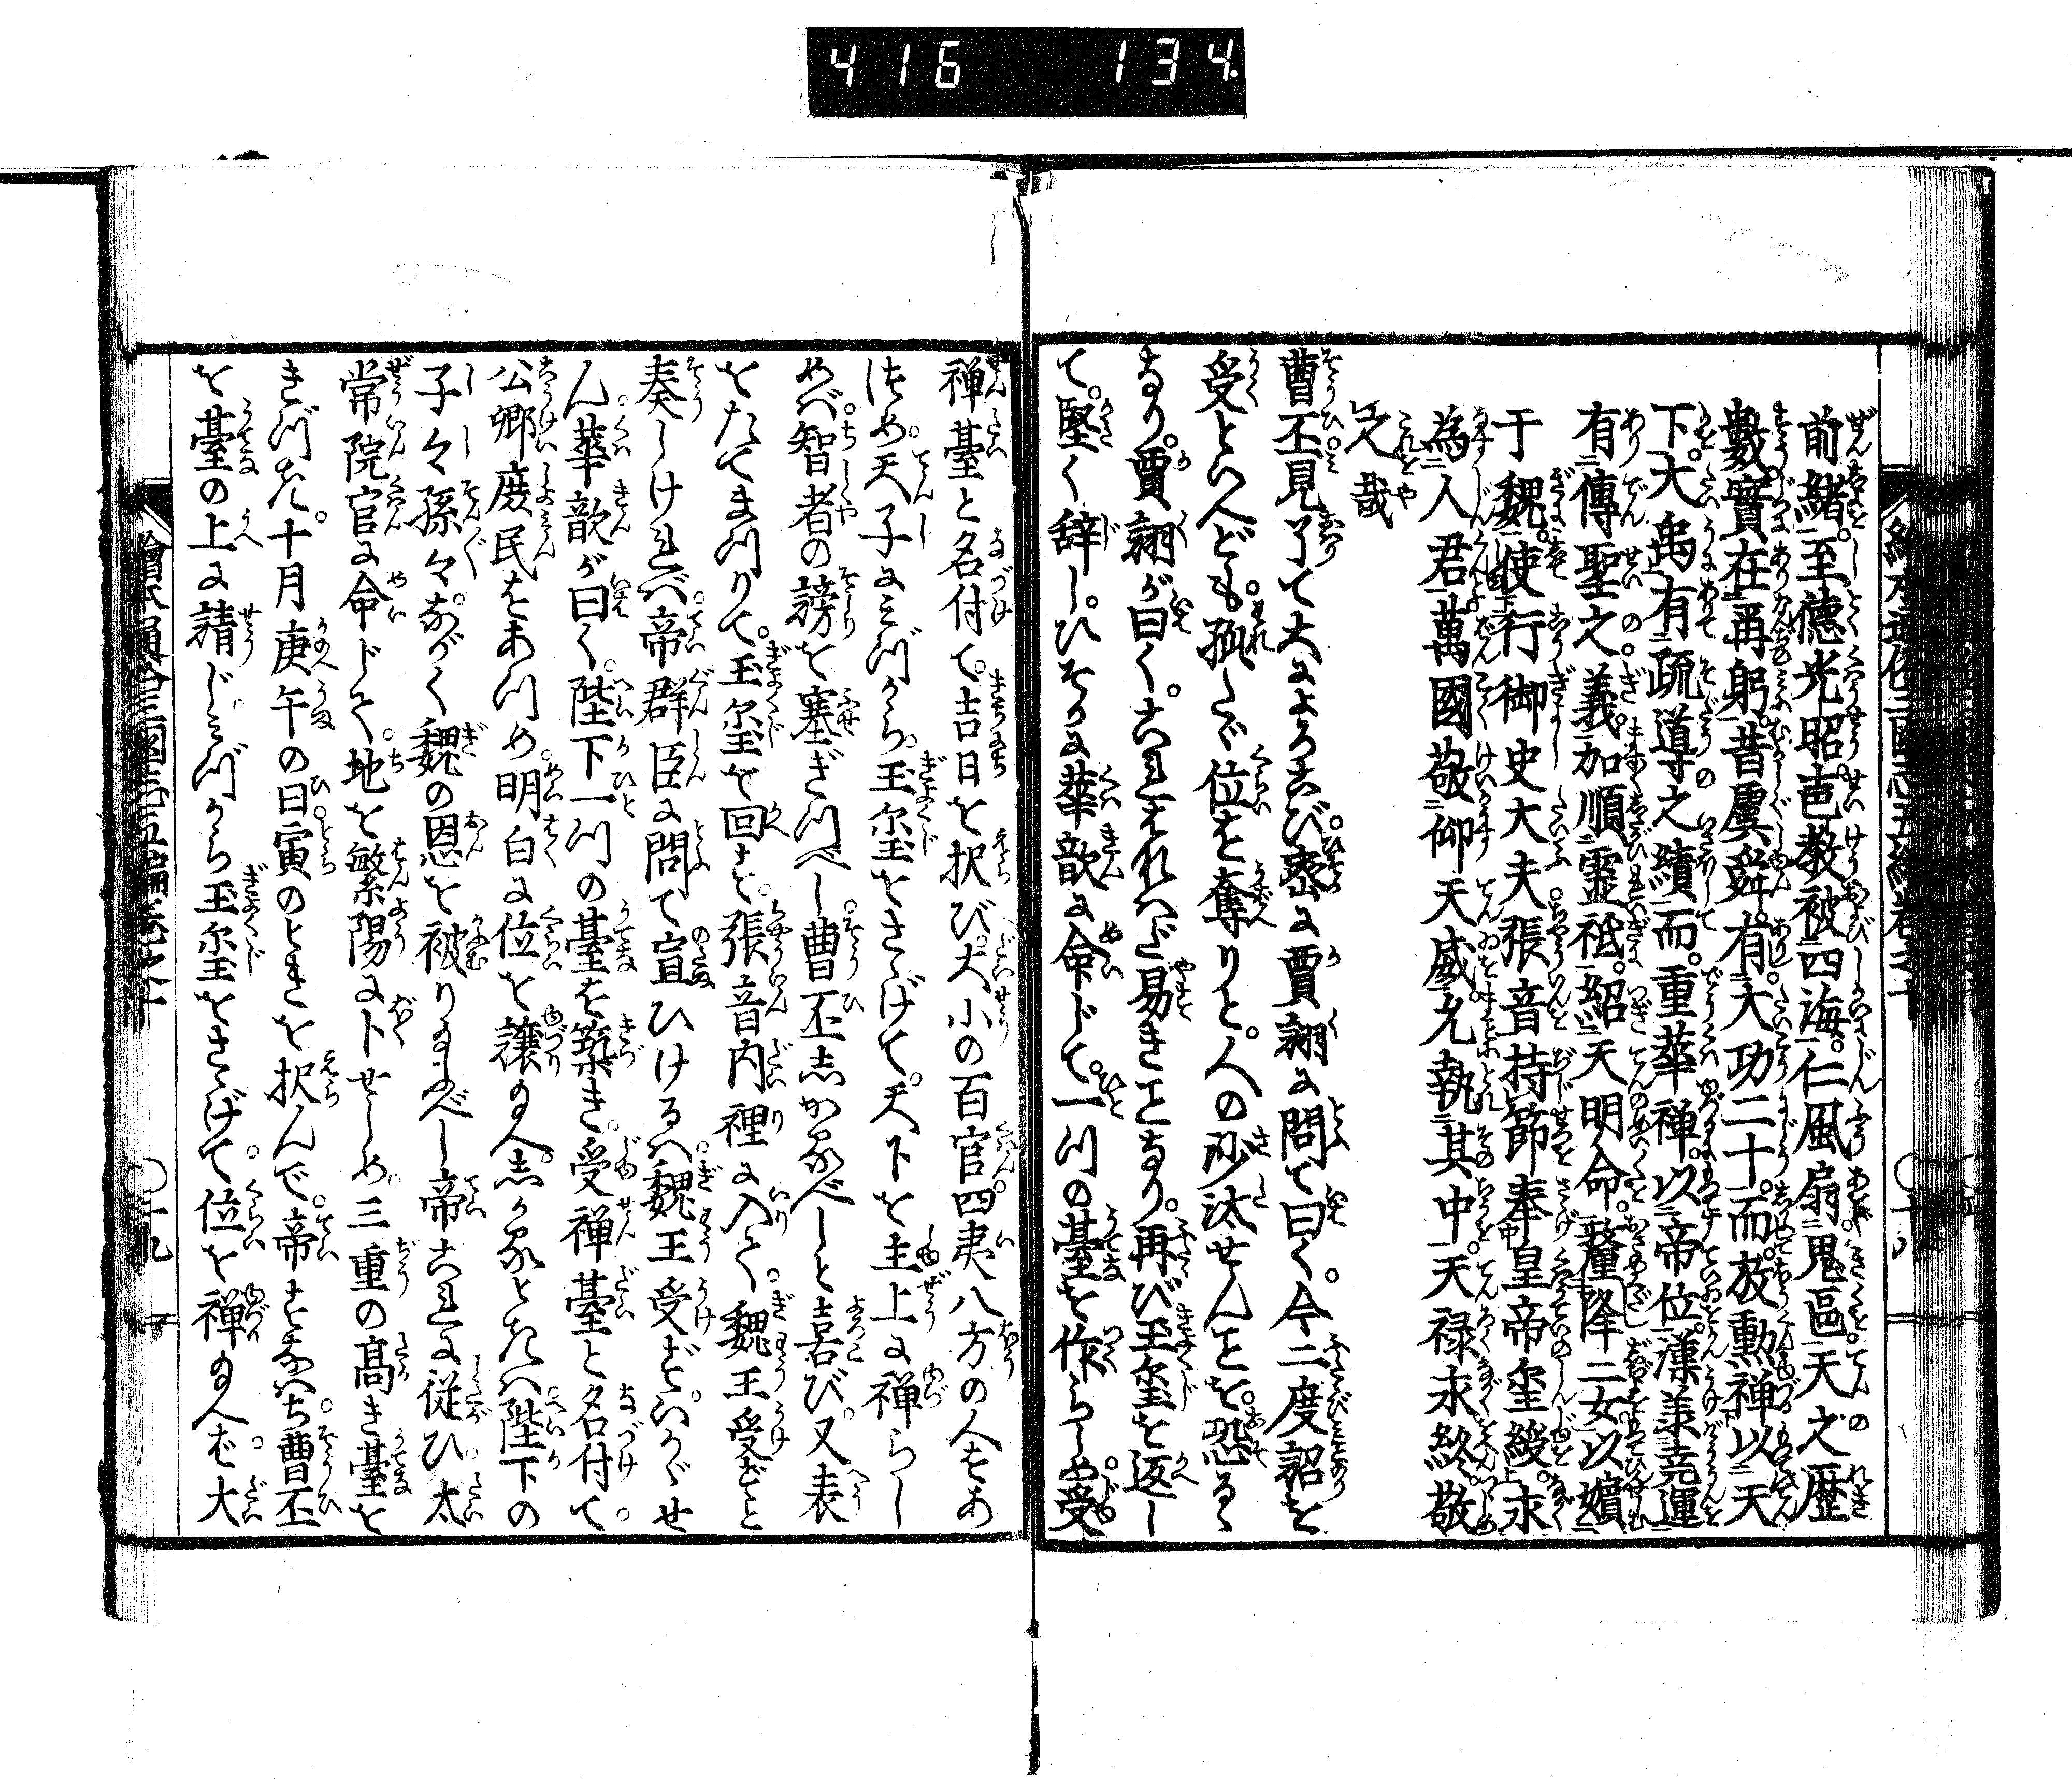 416 134
前緒至徳光昭声教被四海仁風扇鬼區天之歴
數實在再躬昔虞舜有大功二十而放勲禅以天
下大禹有疏導之績而重華禅以帝位漢羕堯運
有傳聖之義加順霊祗紹天明命釐降二女以嬪
于魏使行御史大夫張音持節奉皇帝玺綬永
為人君萬國敬仰天威允執其中天禄永終敬
之哉
曹丕見了て大によろこび密に賈詡に問て曰く今二度詔を
受といへども孤たゞ位を奪りと人の沙汰せんことを恐るゝ
なり賈詡が曰くこれそれハど易きことなり再び玉玺を返し
て堅く辞しひそかに華歆に命じて一ツの臺を作らしめ受
禅臺と名付て吉日を択び大小の百官四夷八方の人をあ
つめ天子にミづから玉玺をさゝげて天下を主上に禅らし
めバ智者の謗を塞ぎつべし曹丕しかるべしと喜び又表
をたてまつりて玉玺を回す張音内裡に入て魏王受ずと
奏しけれバ帝群臣に問て宣ひけるハ魏王受ずいかゞせ
ん華歆が曰く陛下一ツの臺を築き受禅臺と名付て
公卿庶民をあつめ明白に位を譲り給へしからバ陛下の
子々孫々ながく魏の恩を被り給べし帝これに従ひ太
常院官に命じて地を繁陽に卜せしめ三重の高き臺を
きづき十月庚午の日寅のときを択んで帝すなハち曹丕
を臺の上に請じミづから玉玺をさゝげて位を禅り給へバ大
繪本通俗三國志五編巻之十